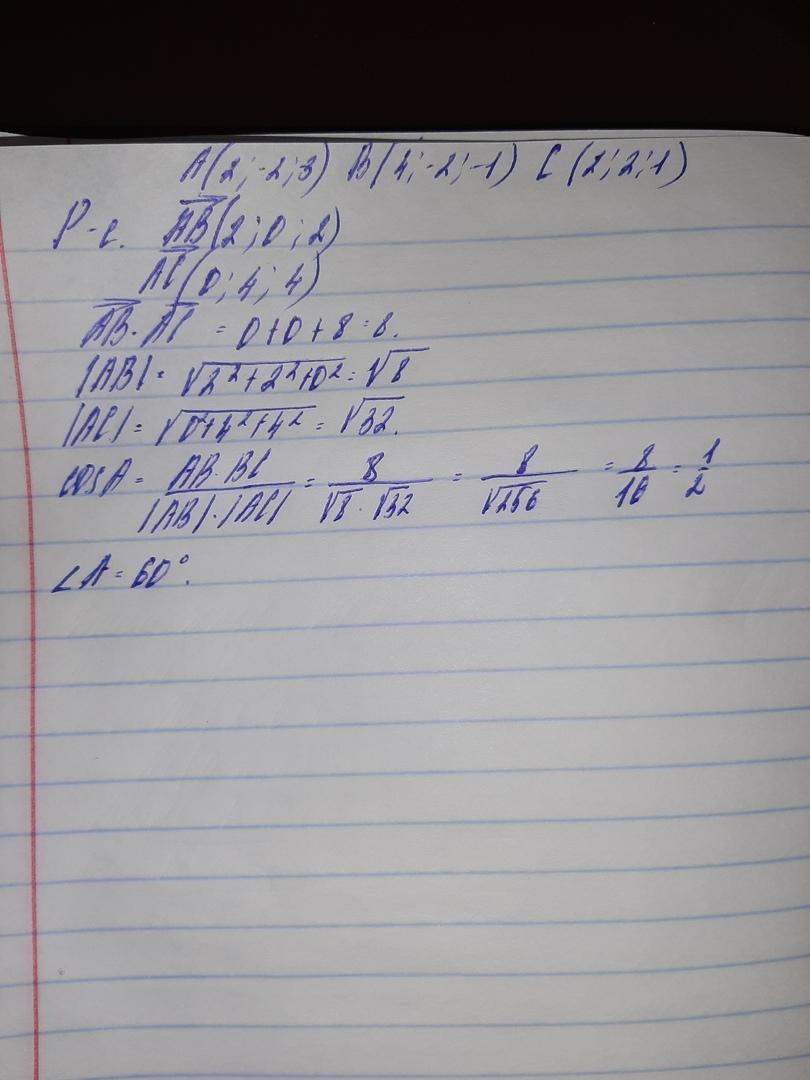 A(2;-2;3) B(4;-2;-1) C(2;2;1)
Р-с. AB(2;0;2)
AC(0;4;4)
AB·AC = 0+0+8=8.
|AB|= √2²+2²+0²=√8
|AC|= √0²+4²+4² = √32.
cosA = AB·BC / |AB|·|AC| = 8 / √8·√32 = 8 / √256 = 8/16 = 1/2
∠A=60°.